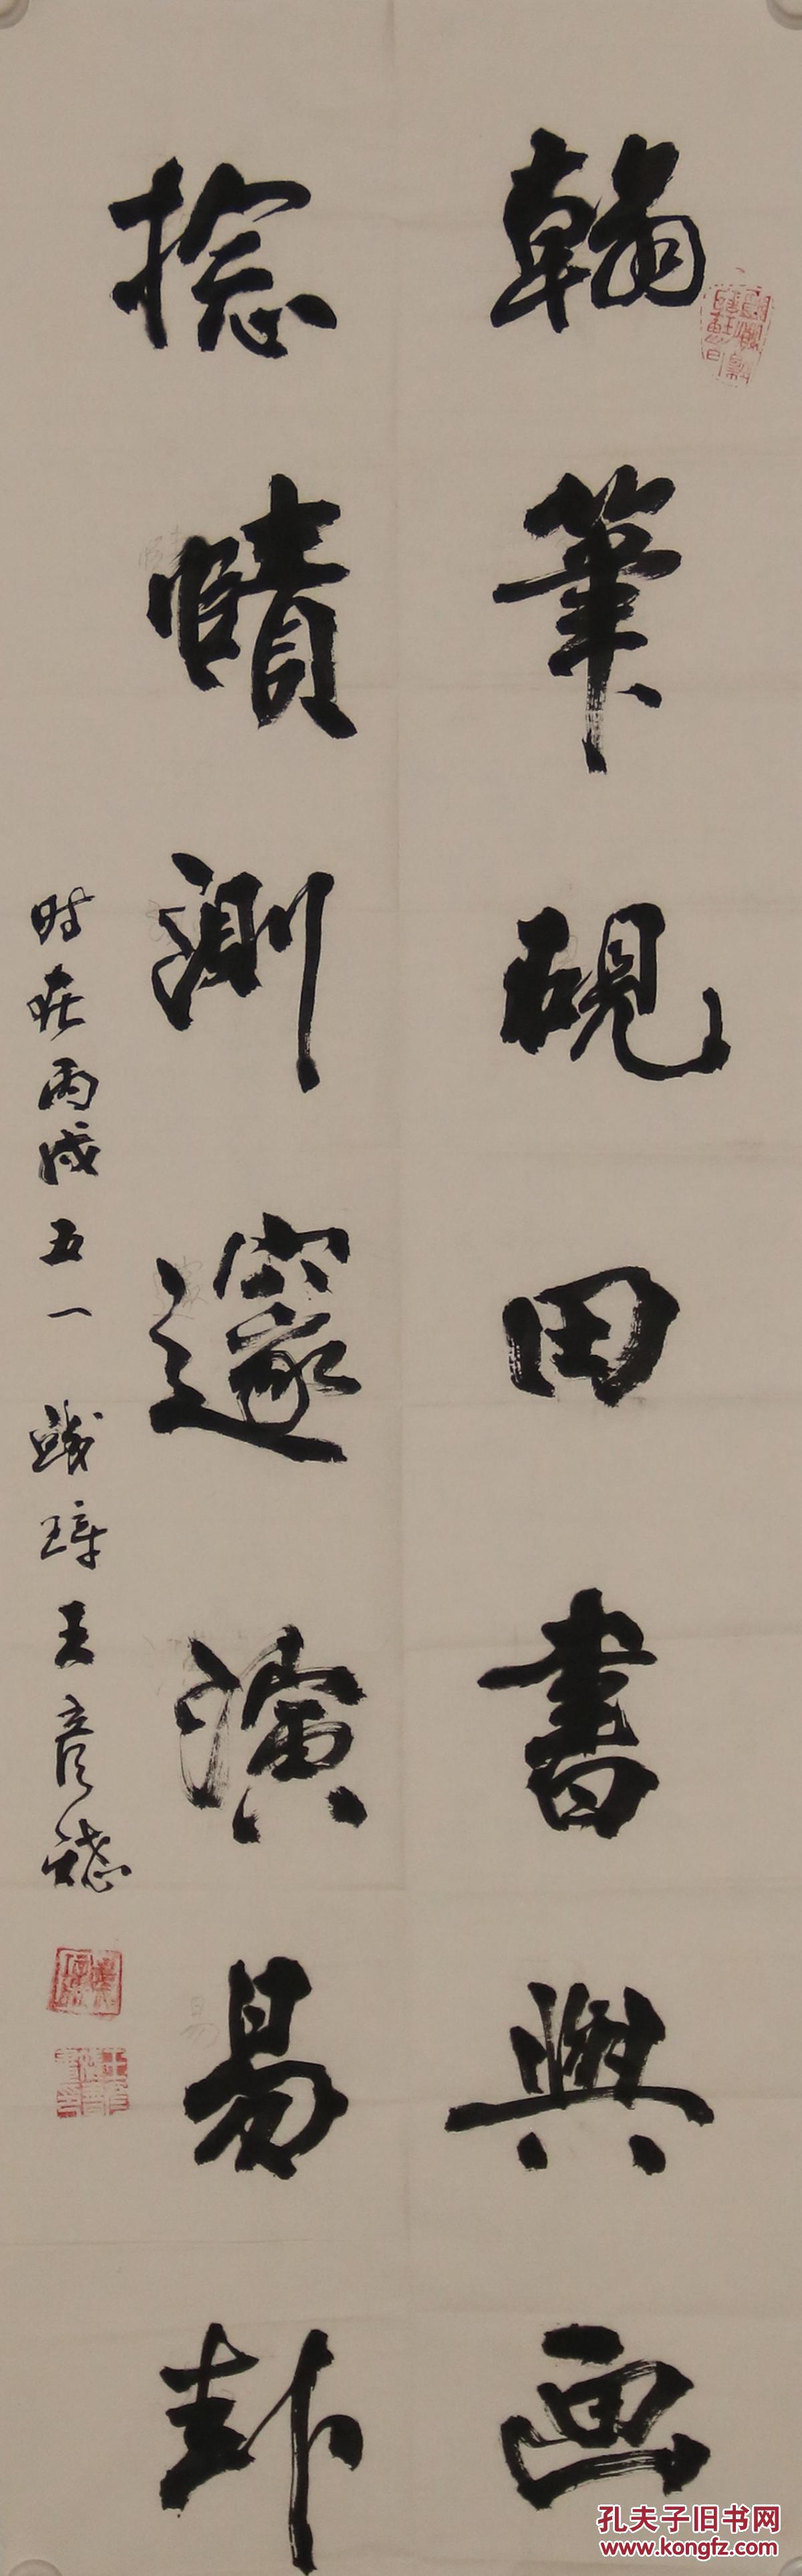 翰筆硯田書與画
捻賾測邃演易卦
时在丙戌五一 王彦
孔夫子旧书网
www.kongfz.com